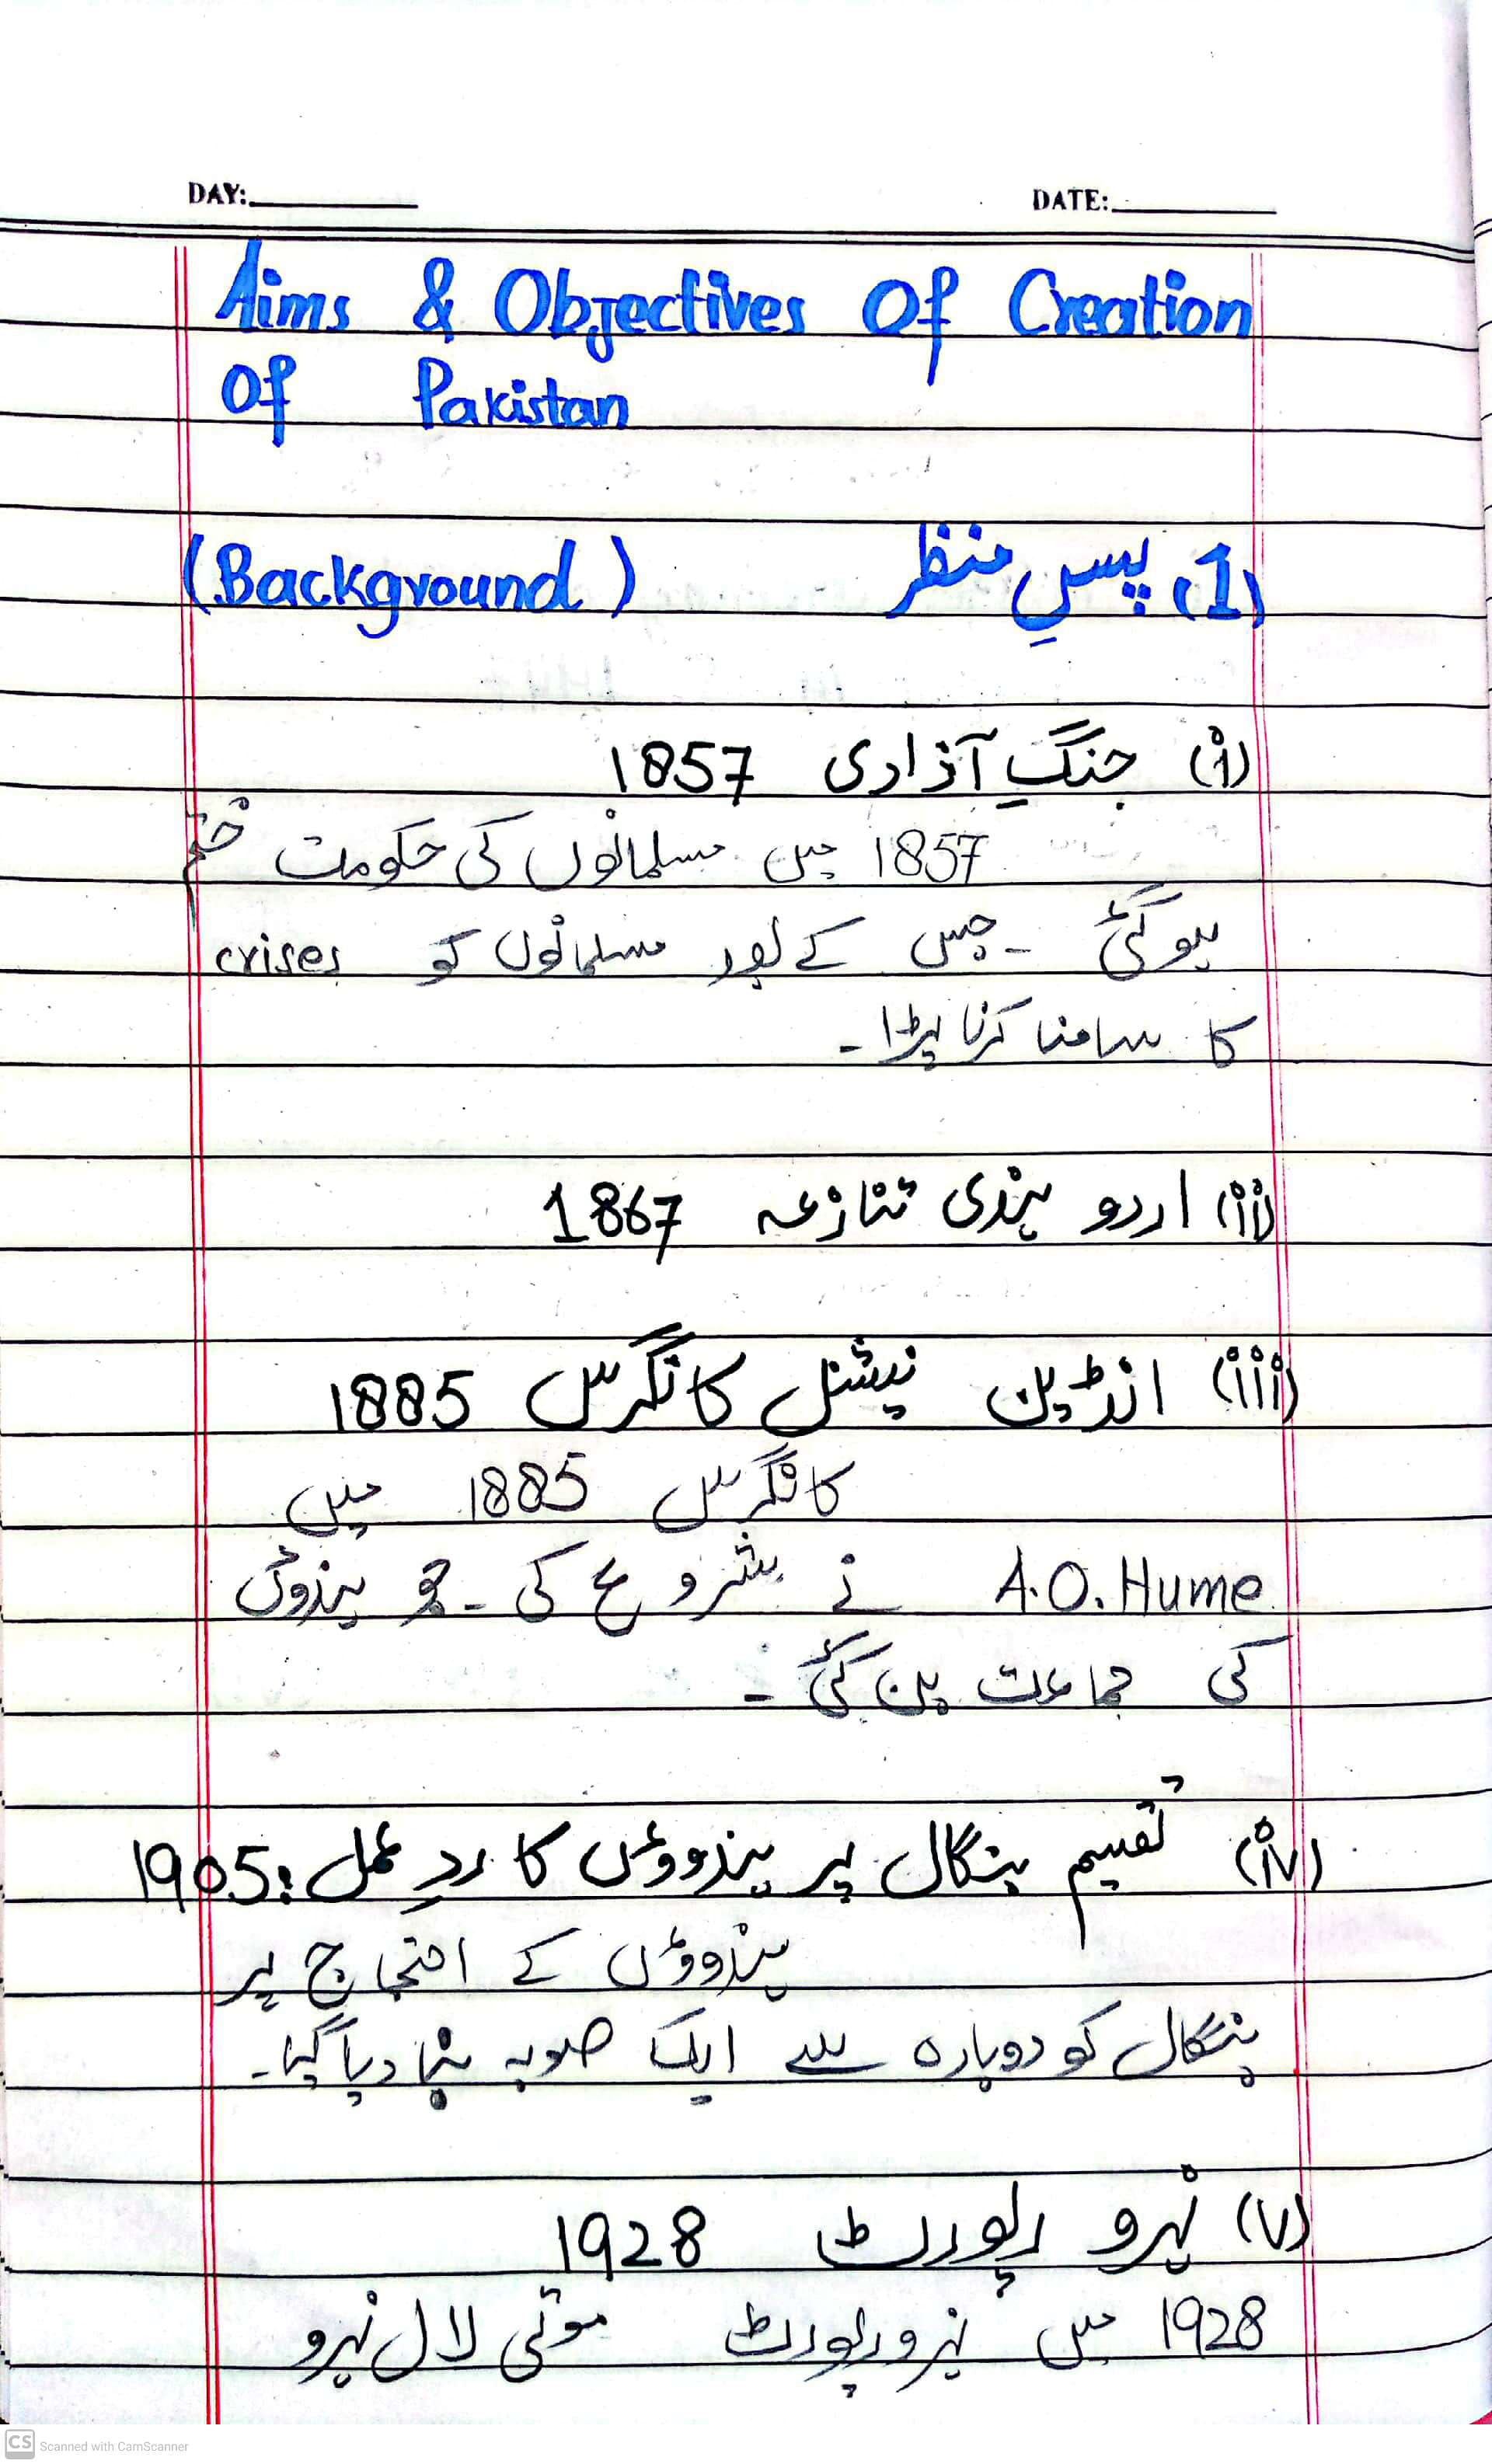 DAY: DATE:
Aims & Objectives Of Creation
Of Pakistan
(1) پسِ منظر (Background)
(i) جنگِ آزادی 1857
1857 میں مسلمانوں کی حکومت ختم
ہوگئی ۔ جس کے بعد مسلمانوں کو crises
کا سامنا کرنا پڑا ۔
(ii) اردو ہندی تنازعہ 1867
(iii) انڈین نیشنل کانگرس 1885
کانگرس 1885 میں
A.O.Hume نے شروع کی ۔ جو ہندوؤں
کی جماعت بن گئی ۔
(iv) تقسیم بنگال پر ہندووؤں کا ردِ عمل : 1905
ہندووؤں کے احتجاج پر
بنگال کو دوبارہ سے ایک صوبہ بنا دیا گیا ۔
(v) نہرو رپورٹ 1928
1928 میں نہرو رپورٹ موتی لال نہرو
CS Scanned with CamScanner